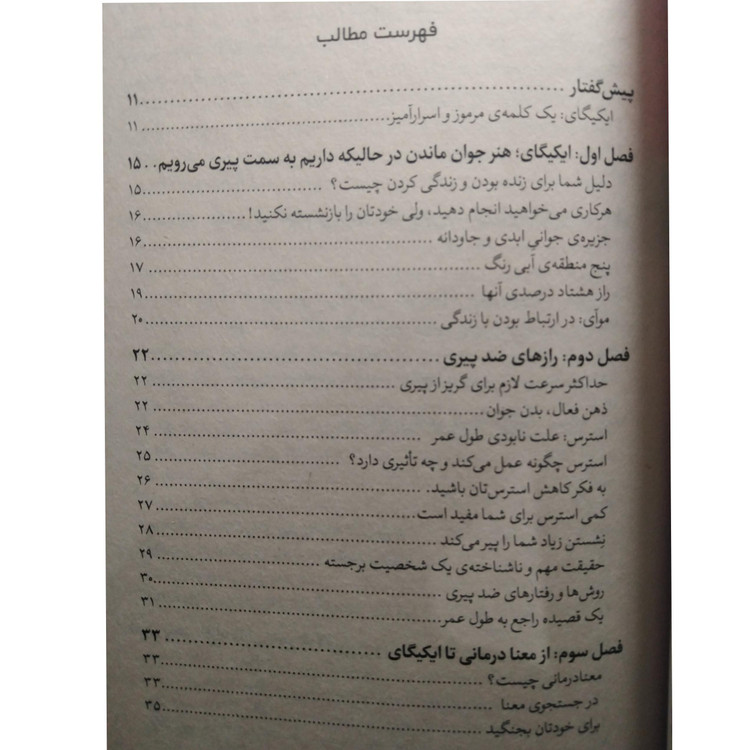 فهرست مطالب
پیش‌گفتار ........................................ ۱۱
ایکیگای: یک کلمه‌ی مرموز و اسرارآمیز ........................................ ۱۱
فصل اول: ایکیگای؛ هنر جوان ماندن در حالیکه داریم به سمت پیری می‌رویم .. ۱۵
دلیل شما برای زنده بودن و زندگی کردن چیست؟ ........................................ ۱۵
هرکاری می‌خواهید انجام دهید، ولی خودتان را بازنشسته نکنید! ........................................ ۱۶
جزیره‌ی جوانیِ ابدی و جاودانه ........................................ ۱۶
پنج منطقه‌ی آبی رنگ ........................................ ۱۷
راز هشتاد درصدی آنها ........................................ ۱۹
موآی: در ارتباط بودن با زندگی ........................................ ۲۰
فصل دوم: رازهای ضد پیری ........................................ ۲۲
حداکثر سرعت لازم برای گریز از پیری ........................................ ۲۲
ذهن فعال، بدن جوان ........................................ ۲۲
استرس: علت نابودی طول عمر ........................................ ۲۴
استرس چگونه عمل می‌کند و چه تأثیری دارد؟ ........................................ ۲۵
به فکر کاهش استرس‌تان باشید. ........................................ ۲۶
کمی استرس برای شما مفید است ........................................ ۲۷
نِشستن زیاد شما را پیر می‌کند ........................................ ۲۸
حقیقت مهم و ناشناخته‌ی یک شخصیت برجسته ........................................ ۲۹
روش‌ها و رفتارهای ضد پیری ........................................ ۳۰
یک قصیده راجع به طول عمر ........................................ ۳۱
فصل سوم: از معنا درمانی تا ایکیگای ........................................ ۳۳
معنادرمانی چیست؟ ........................................ ۳۳
در جستجوی معنا ........................................ ۳۳
برای خودتان بجنگید ........................................ ۳۵